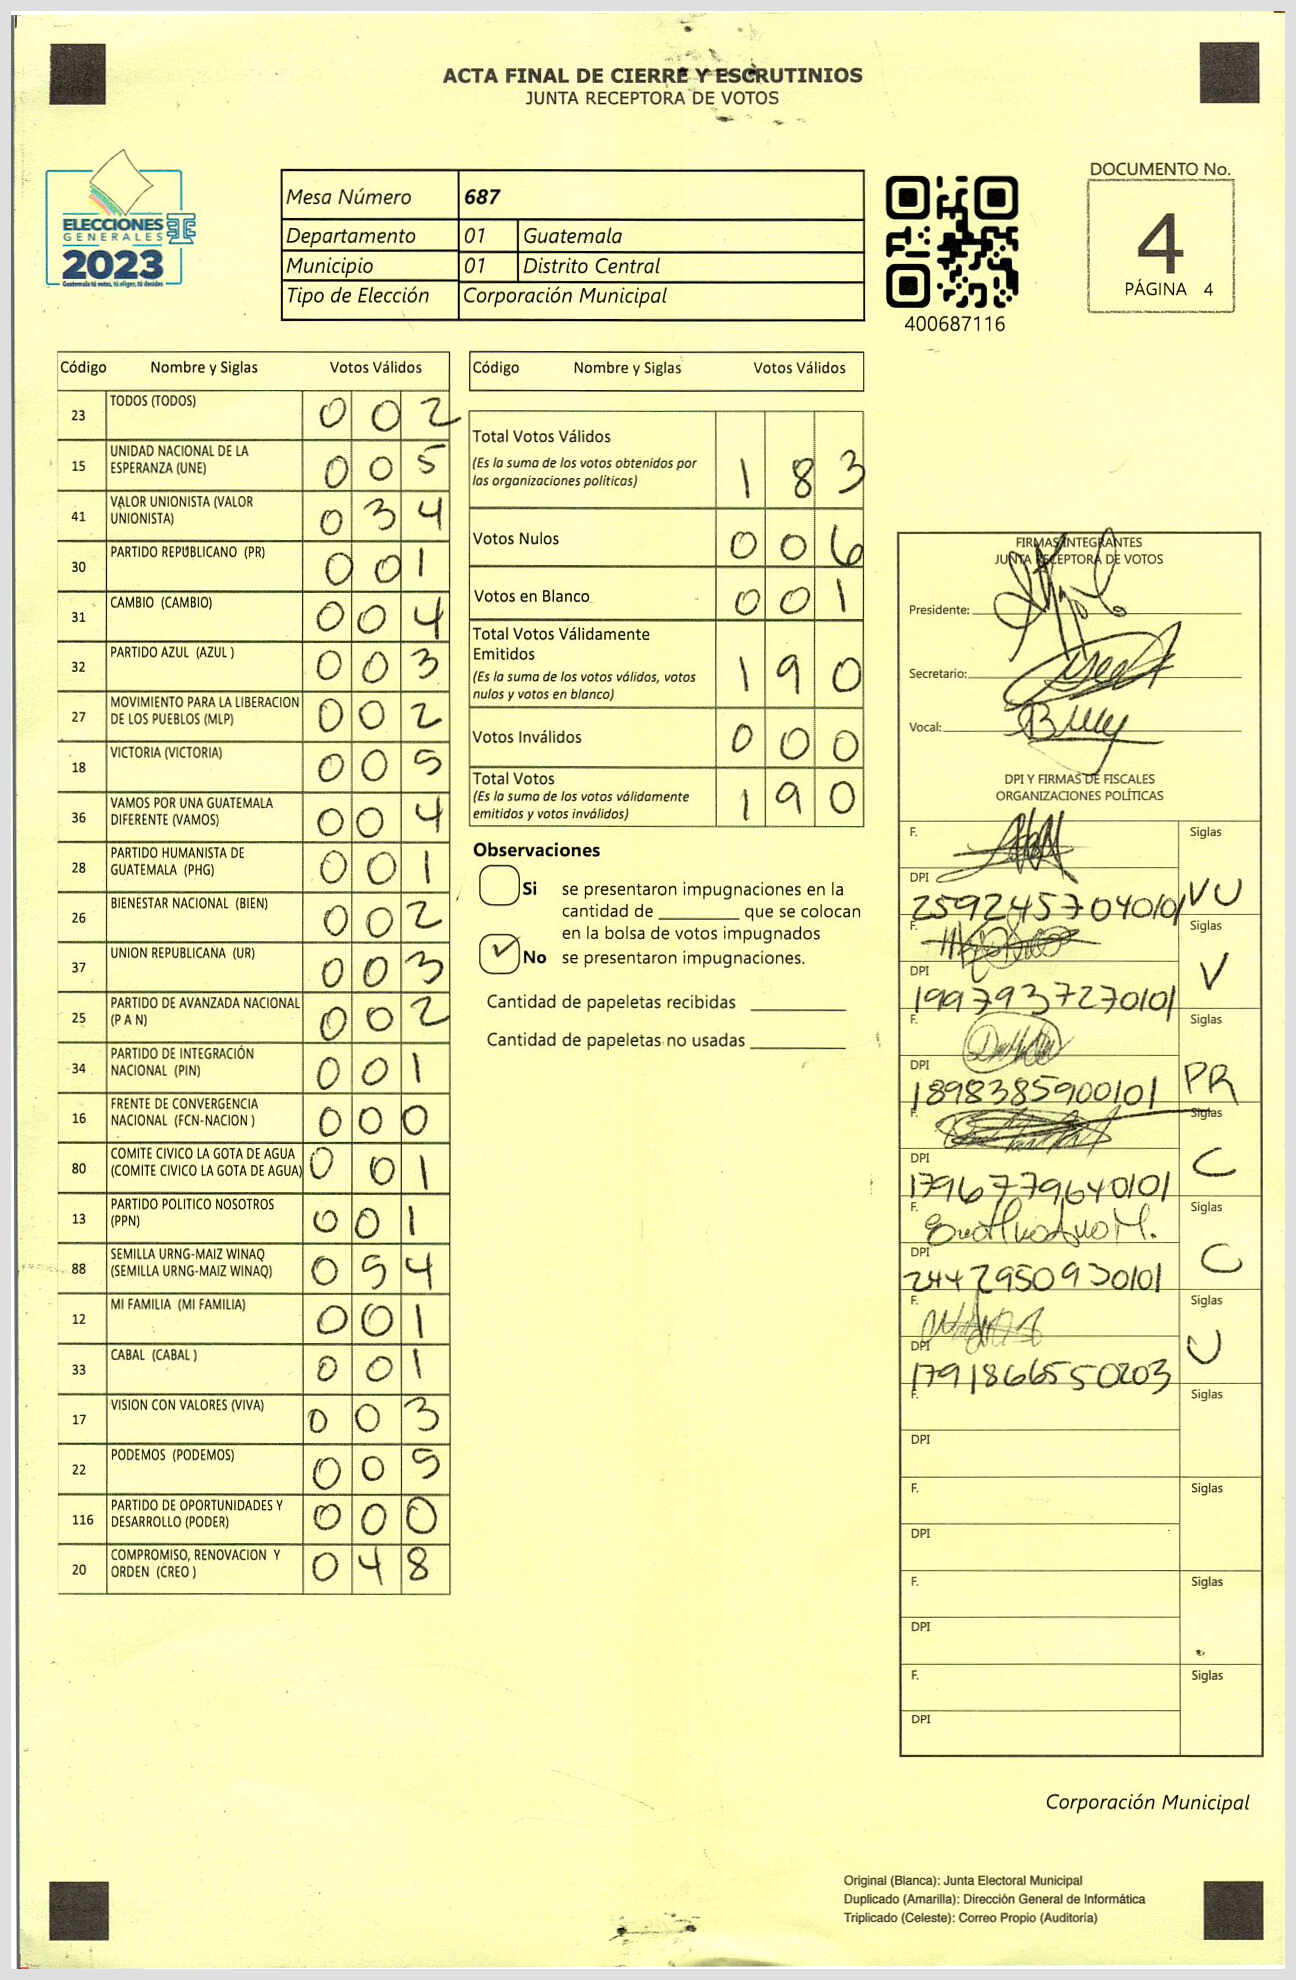 ACTA FINAL DE CIERRE Y ESCRUTINIOS
JUNTA RECEPTORA DE VOTOS
ELECCIONES
GENERALES
2023
Guatemala tú votas, tú eliges, tú decides
Mesa Número 687
Departamento 01 Guatemala
Municipio 01 Distrito Central
Tipo de Elección Corporación Municipal
400687116
DOCUMENTO No.
4
PÁGINA 4
Código Nombre y Siglas Votos Válidos
23 TODOS (TODOS) 0 0 2
15 UNIDAD NACIONAL DE LA
ESPERANZA (UNE) 0 0 5
41 VALOR UNIONISTA (VALOR
UNIONISTA) 0 3 4
30 PARTIDO REPUBLICANO (PR) 0 0 1
31 CAMBIO (CAMBIO) 0 0 4
32 PARTIDO AZUL (AZUL ) 0 0 3
27 MOVIMIENTO PARA LA LIBERACION
DE LOS PUEBLOS (MLP) 0 0 2
18 VICTORIA (VICTORIA) 0 0 5
36 VAMOS POR UNA GUATEMALA
DIFERENTE (VAMOS) 0 0 4
28 PARTIDO HUMANISTA DE
GUATEMALA (PHG) 0 0 1
26 BIENESTAR NACIONAL (BIEN) 0 0 2
37 UNION REPUBLICANA (UR) 0 0 3
25 PARTIDO DE AVANZADA NACIONAL
(P A N) 0 0 2
34 PARTIDO DE INTEGRACIÓN
NACIONAL (PIN) 0 0 1
16 FRENTE DE CONVERGENCIA
NACIONAL (FCN-NACION ) 0 0 0
80 COMITE CIVICO LA GOTA DE AGUA
(COMITE CIVICO LA GOTA DE AGUA) 0 0 1
13 PARTIDO POLITICO NOSOTROS
(PPN) 0 0 1
88 SEMILLA URNG-MAIZ WINAQ
(SEMILLA URNG-MAIZ WINAQ) 0 5 4
12 MI FAMILIA (MI FAMILIA) 0 0 1
33 CABAL (CABAL ) 0 0 1
17 VISION CON VALORES (VIVA) 0 0 3
22 PODEMOS (PODEMOS) 0 0 5
116 PARTIDO DE OPORTUNIDADES Y
DESARROLLO (PODER) 0 0 0
20 COMPROMISO, RENOVACION Y
ORDEN (CREO ) 0 4 8
Código Nombre y Siglas Votos Válidos
Total Votos Válidos
(Es la suma de los votos obtenidos por
las organizaciones políticas) 1 8 3
Votos Nulos 0 0 6
Votos en Blanco 0 0 1
Total Votos Válidamente
Emitidos
(Es la suma de los votos válidos, votos
nulos y votos en blanco) 1 9 0
Votos Inválidos 0 0 0
Total Votos
(Es la suma de los votos válidamente
emitidos y votos inválidos) 1 9 0
Observaciones
Si se presentaron impugnaciones en la
cantidad de ________ que se colocan
en la bolsa de votos impugnados
No se presentaron impugnaciones.
Cantidad de papeletas recibidas
Cantidad de papeletas no usadas
FIRMAS INTEGRANTES
JUNTA RECEPTORA DE VOTOS
Presidente:
Secretario:
Vocal:
DPI Y FIRMAS DE FISCALES
ORGANIZACIONES POLÍTICAS
F. Siglas
DPI
2592457040101 VU
F. Siglas
DPI
1997937270101 V
F. Siglas
DPI
1898385900101 PR
F. Siglas
DPI
1796779640101 C
F. Siglas
DPI
2442950930101 C
F. Siglas
DPI
1791866550203 U
F. Siglas
DPI
F. Siglas
DPI
F. Siglas
DPI
F. Siglas
DPI
Corporación Municipal
Original (Blanca): Junta Electoral Municipal
Duplicado (Amarilla): Dirección General de Informática
Triplicado (Celeste): Correo Propio (Auditoría)